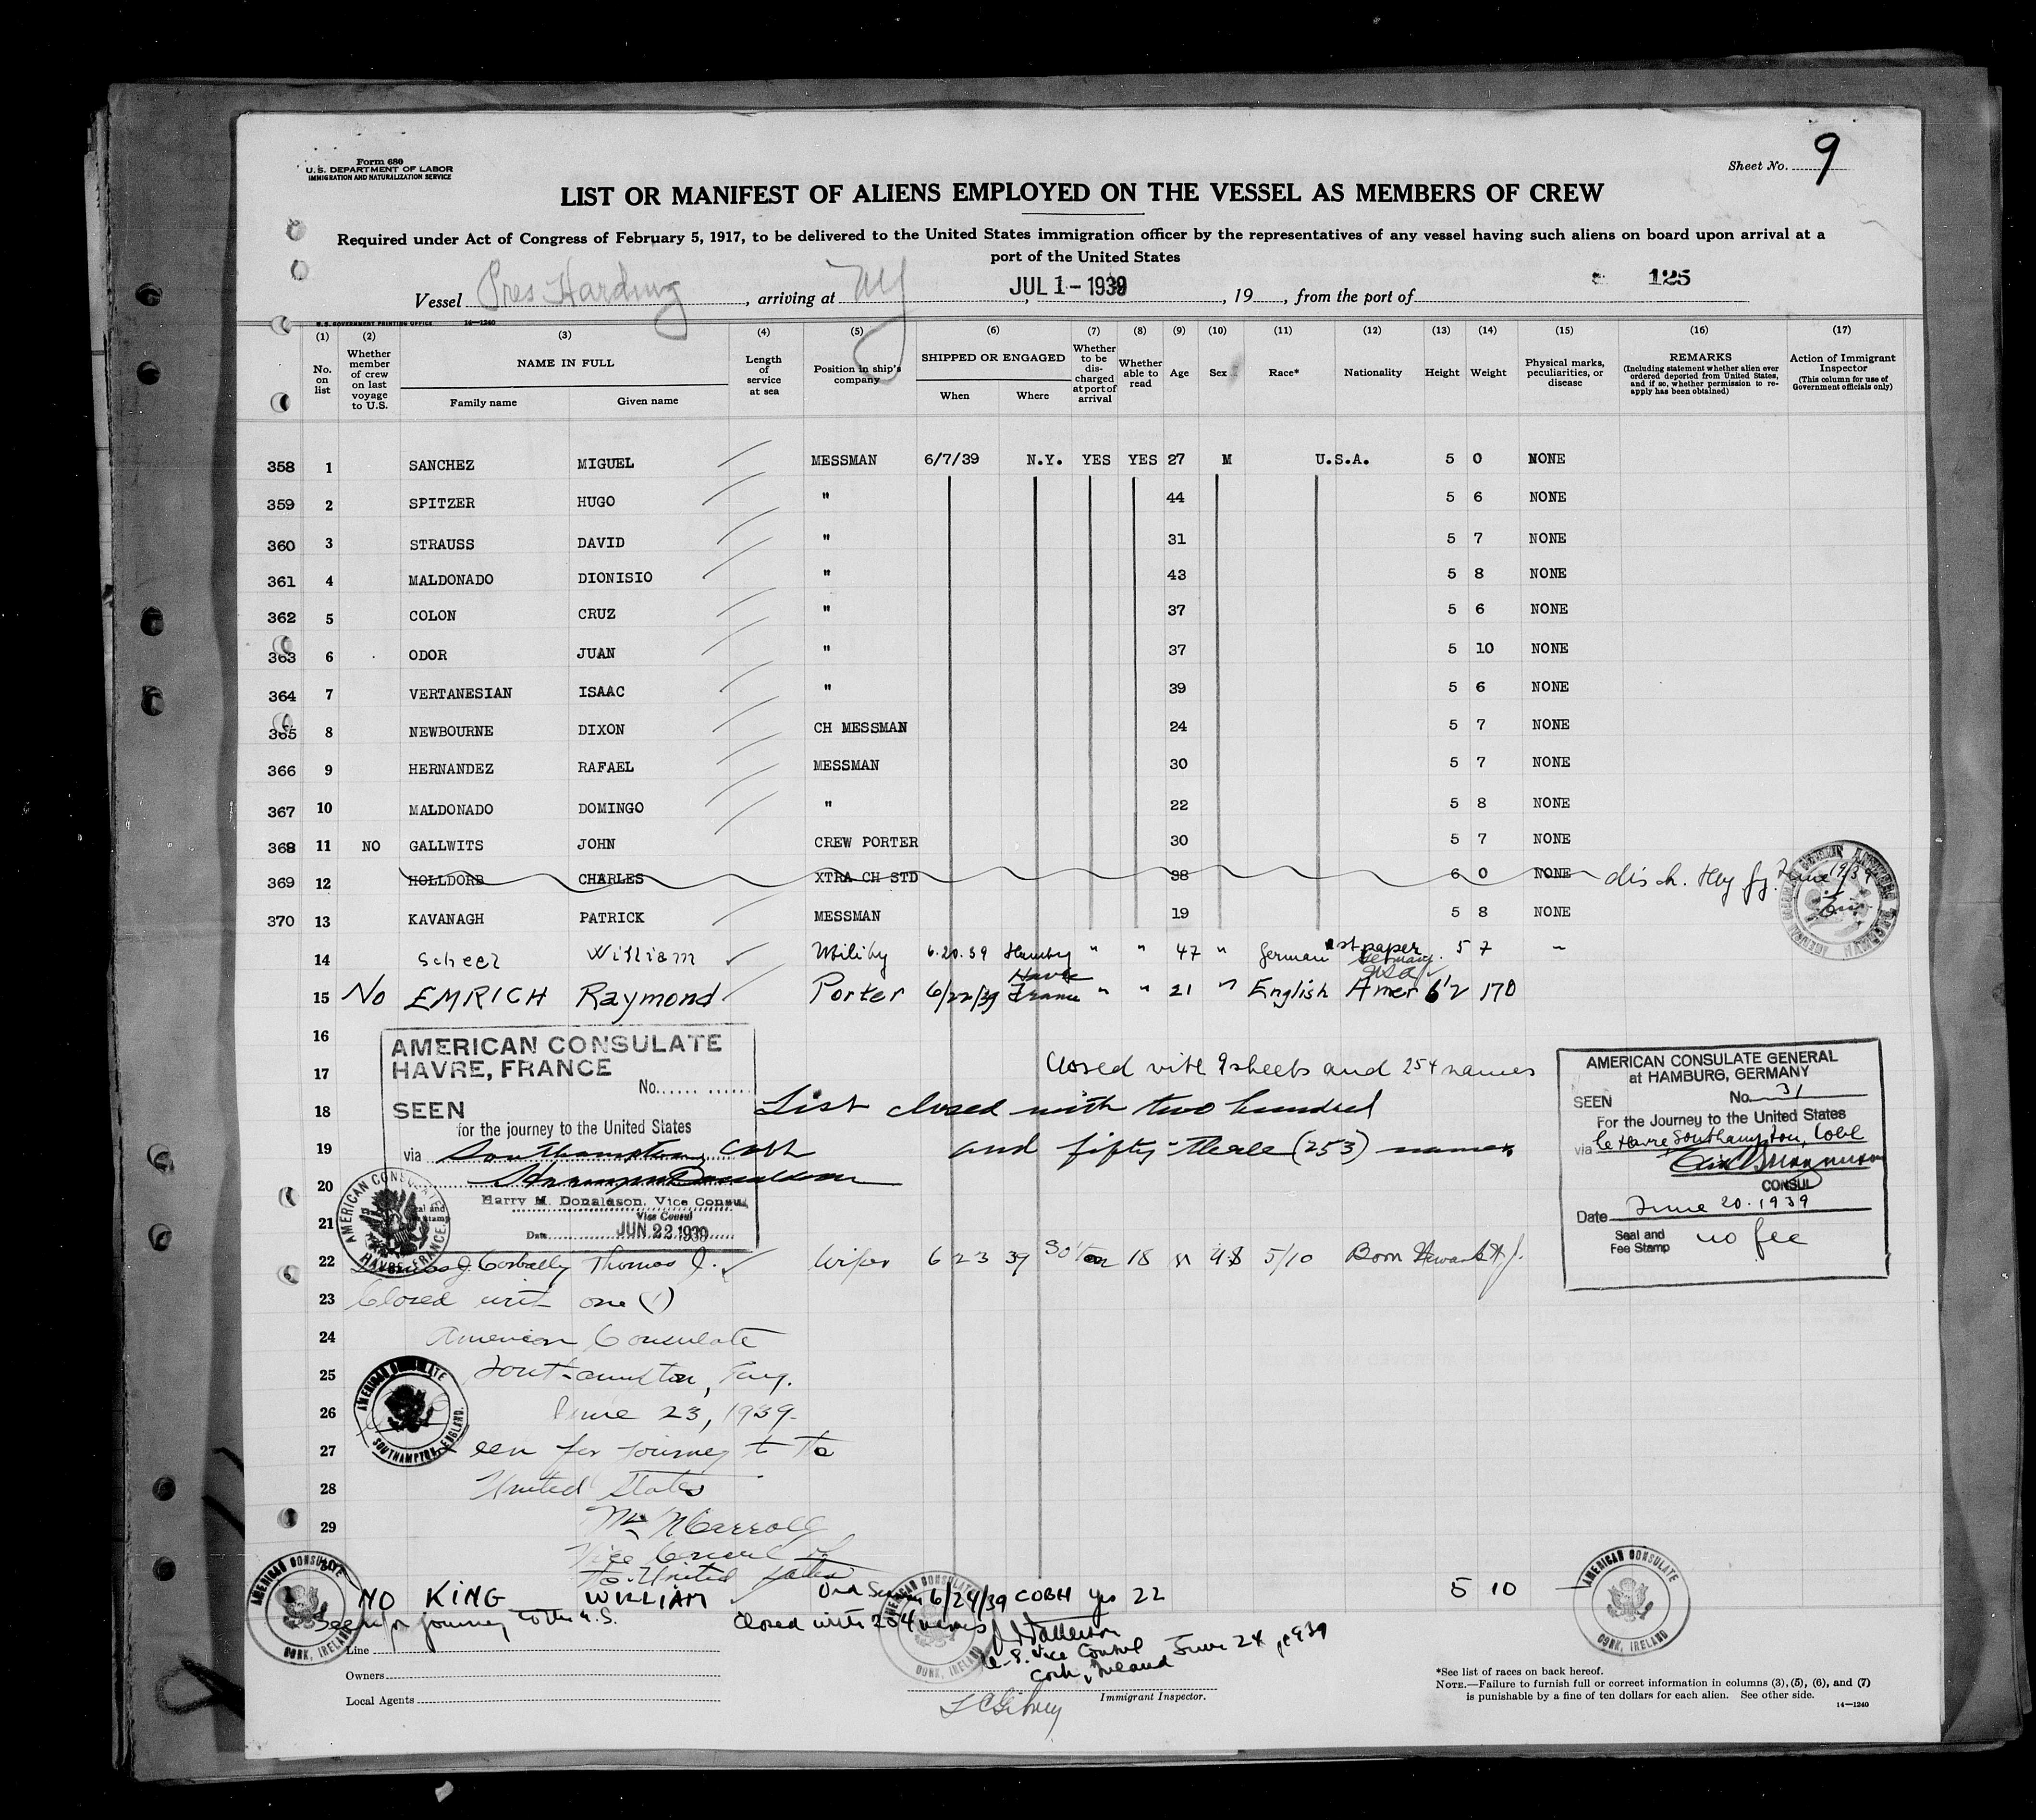 Form 680
U.S. DEPARTMENT OF LABOR
IMMIGRATION AND NATURALIZATION SERVICE
Sheet No. 9
LIST OR MANIFEST OF ALIENS EMPLOYED ON THE VESSEL AS MEMBERS OF CREW
Required under Act of Congress of February 5, 1917, to be delivered to the United States immigration officer by the representatives of any vessel having such aliens on board upon arrival at a
port of the United States
125
Vessel Pres Harding, arriving at NY, JUL 1-1939, 19, from the port of
U.S. GOVERNMENT PRINTING OFFICE 14—1240
(1) No. on list
(2) Whether member of crew on last voyage to U.S.
(3) NAME IN FULL Family name Given name
(4) Length of service at sea
(5) Position in ship's company
(6) SHIPPED OR ENGAGED When Where
(7) Whether to be discharged at port of arrival
(8) Whether able to read
(9) Age
(10) Sex
(11) Race*
(12) Nationality
(13) Height
(14) Weight
(15) Physical marks, peculiarities, or disease
(16) REMARKS (Including statement whether alien ever ordered deported from United States, and if so, whether permission to reapply has been obtained)
(17) Action of Immigrant Inspector (This column for use of Government officials only)
358 1 SANCHEZ MIGUEL MESSMAN 6/7/39 N.Y. YES YES 27 M U.S.A. 5 0 NONE
359 2 SPITZER HUGO " 44 5 6 NONE
360 3 STRAUSS DAVID " 31 5 7 NONE
361 4 MALDONADO DIONISIO " 43 5 8 NONE
362 5 COLON CRUZ " 37 5 6 NONE
363 6 ODOR JUAN " 37 5 10 NONE
364 7 VERTANESIAN ISAAC " 39 5 6 NONE
365 8 NEWBOURNE DIXON CH MESSMAN 24 5 7 NONE
366 9 HERNANDEZ RAFAEL MESSMAN 30 5 7 NONE
367 10 MALDONADO DOMINGO " 22 5 8 NONE
368 11 NO GALLWITS JOHN CREW PORTER 30 5 7 NONE
369 12 HOLLDORB CHARLES XTRA CH STD 38 6 0 NONE disch. Hbg June 19/39
370 13 KAVANAGH PATRICK MESSMAN 19 5 8 NONE
14 Scheel William 6.20.39 Hamburg " " 47 " German 1st paper Germany 5 7 –
USA
15 No EMRICH Raymond Porter 6/22/39 Havre France " " 21 " English Amer 6'2 170
16
17
18
19
20
21
AMERICAN CONSULATE
HAVRE, FRANCE
No.
SEEN
for the journey to the United States
via Southampton, Cobh
Harry M. Donaldson, Vice Consul
Vice Consul
Date JUN 22 1939
AMERICAN CONSULATE HAVRE, FRANCE
Closed with 9 sheets and 254 names
List closed with two hundred
and fifty-three (253) names
AMERICAN CONSULATE GENERAL
at HAMBURG, GERMANY
SEEN No. 31
For the Journey to the United States
via Le Havre, Southampton, Cobh
CONSUL
Date June 20. 1939
Seal and
Fee Stamp no fee
22 Corbally Thomas J. Wiper 6 23 39 So'ton 18 5/10 Born Newark N.J.
23 Closed with one (1)
24 American Consulate
25 Southampton, Eng.
26 June 23, 1939.
27 Seen for journey to the
28 United States
29
Vice Consul of
the United States
AMERICAN CONSULATE SOUTHAMPTON, ENGLAND.
NO KING WILLIAM Ord Seaman 6/24/39 COBH yes 22 5 10 –
Seen for journey to the U.S. Closed with 254 names
U.S. Vice Consul June 24 1939
Cork, Ireland
AMERICAN CONSULATE CORK, IRELAND
AMERICAN CONSULATE CORK, IRELAND
AMERICAN CONSULATE CORK, IRELAND
Line
Owners
Local Agents
Immigrant Inspector.
*See list of races on back hereof.
NOTE.—Failure to furnish full or correct information in columns (3), (5), (6), and (7)
is punishable by a fine of ten dollars for each alien. See other side.
14—1240